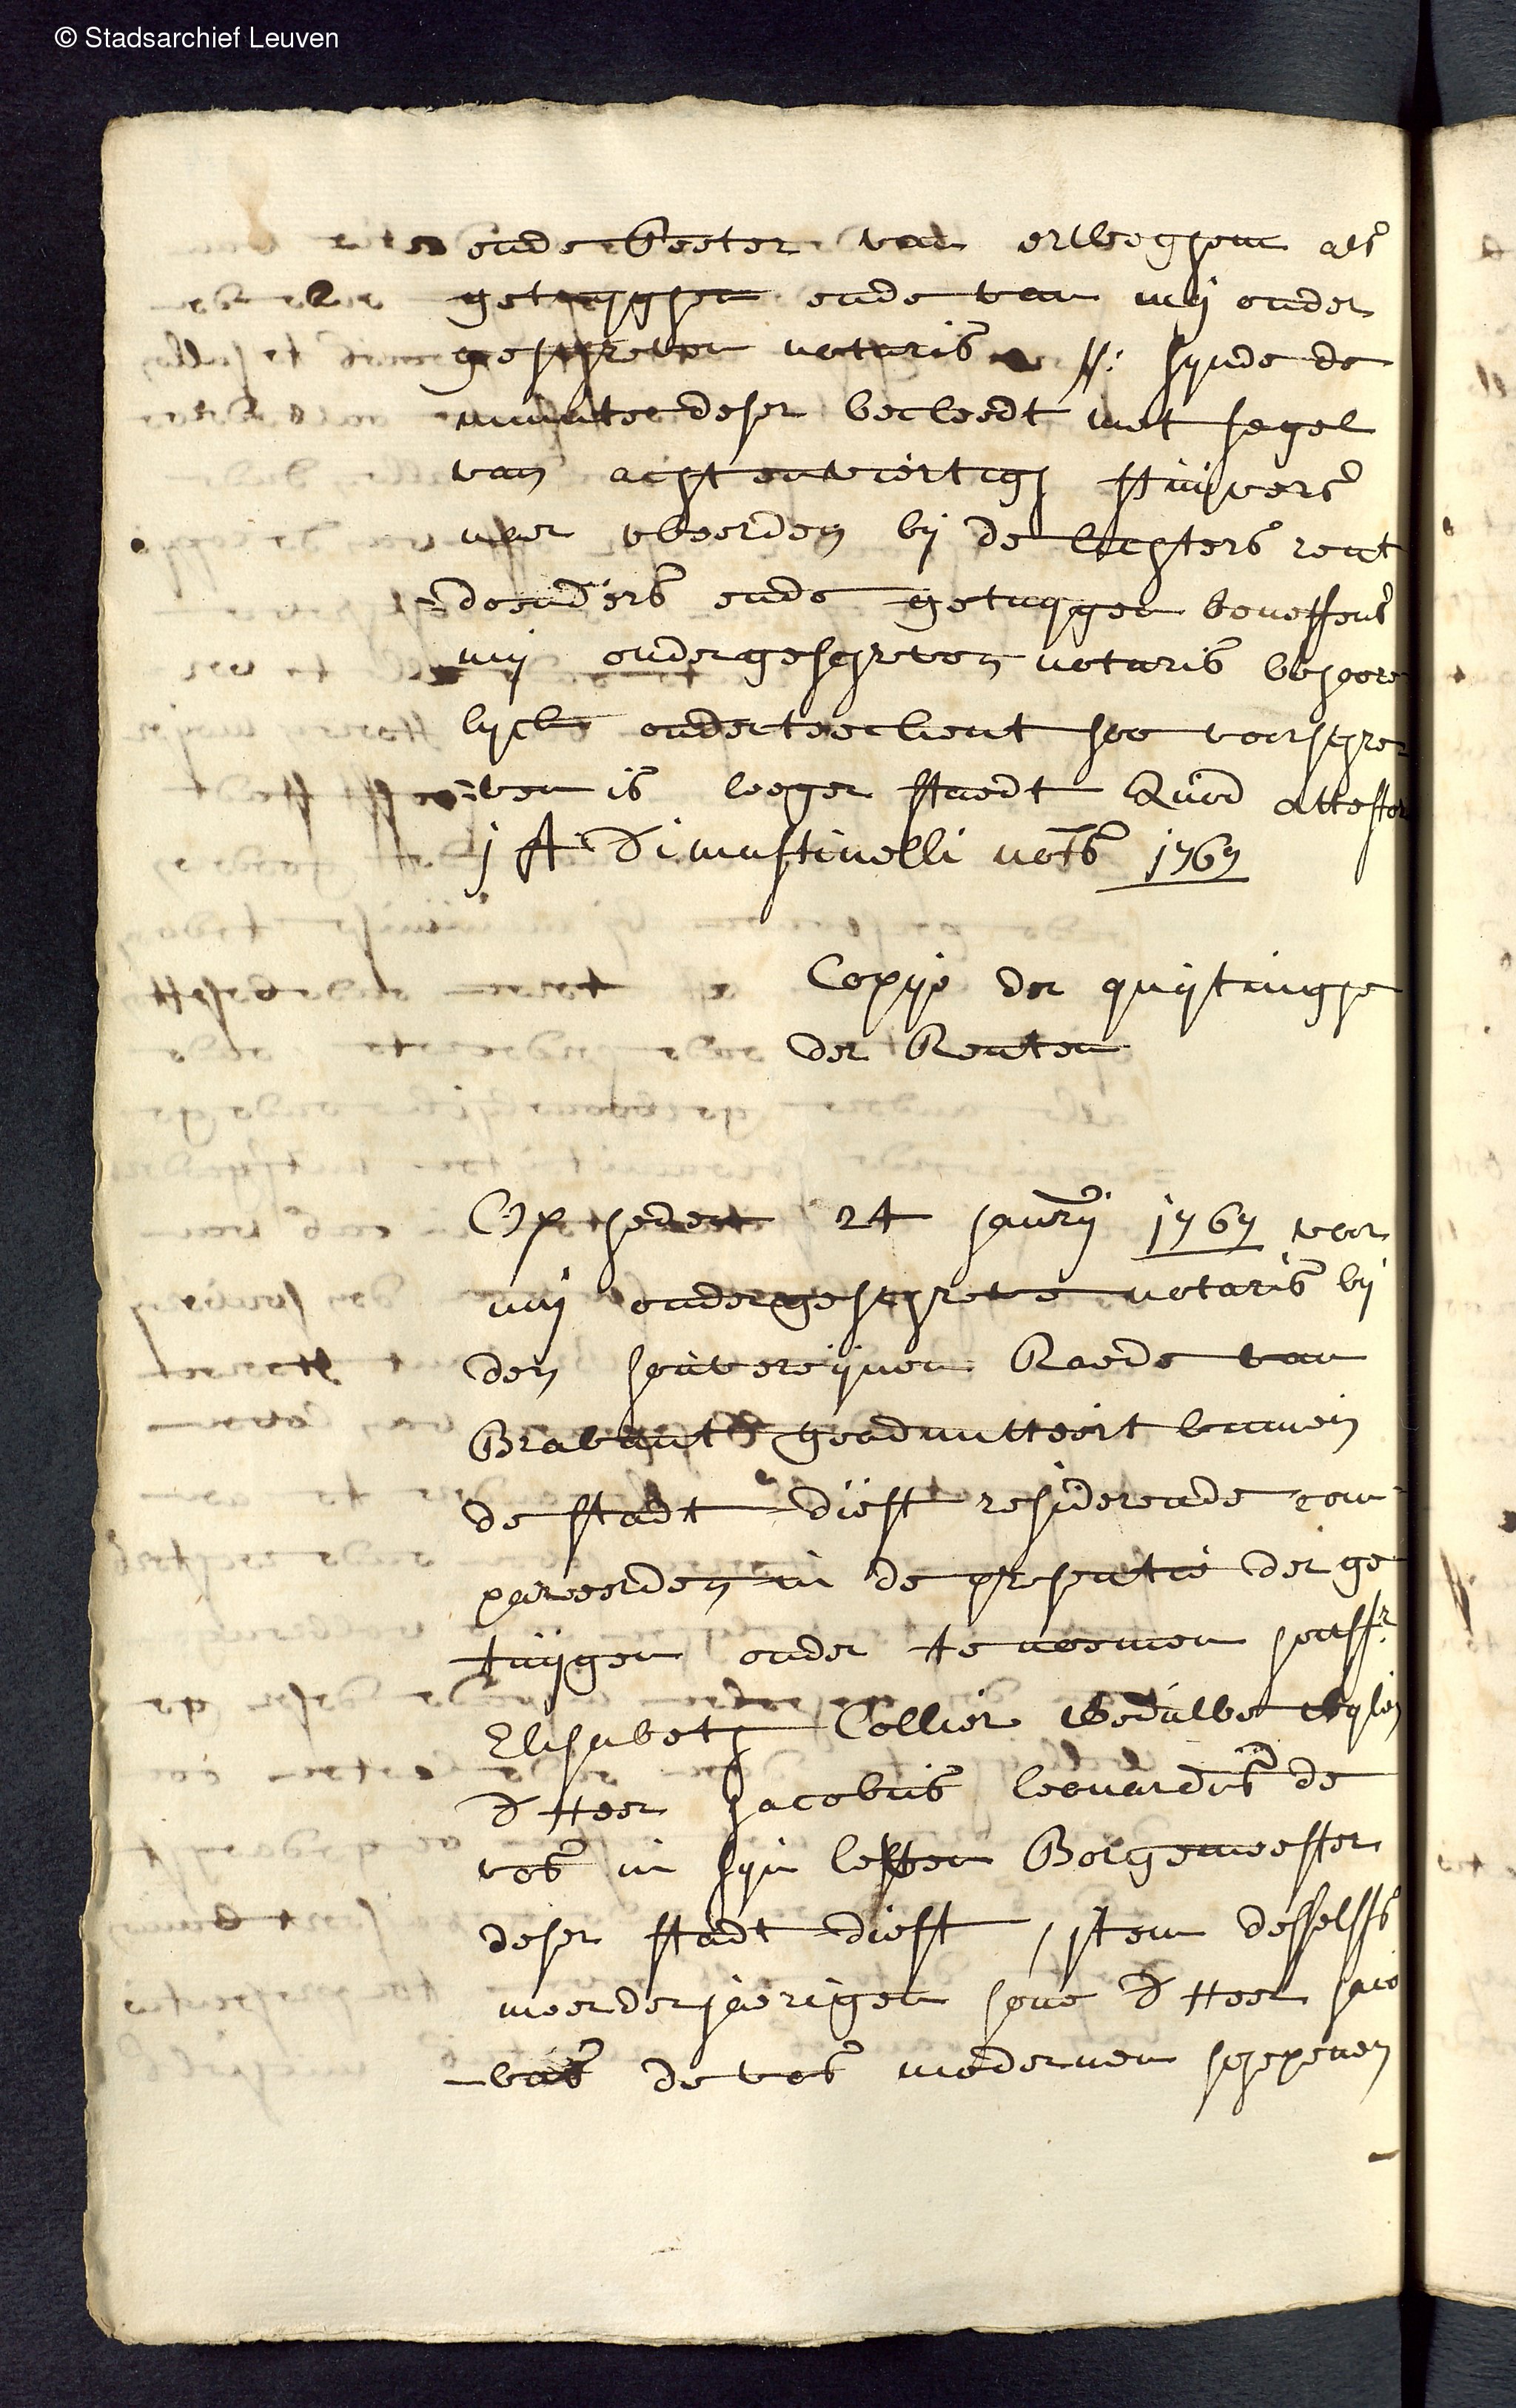 © Stadsarchief Leuven
ende Peeter van erlbeeghem als
getuijghen ende van mij onder
geschreven notaris /: sijnde de
minute deser becleedt met segel
van achtenviertigh stuijvers
naer weerden bij de lichters rent
gelders ende getuijgen beneffens
mij ondergeschreven notaris behoore
lijcke onderteeckent soo voorschre
ven is leeger staedt Quod attestor
j A Dimartinelli nots 1767
Copije der quijtinghe
der Renten
Op heden 24 januarij 1767 voor
mij ondergeschreve notaris bij
den souvereijnen Raede van
Brabant geadmitteert binnen
de stadt diest residerende com
pareerden in de presentie der ge
tuijgen onder te noemen jouffr
Elisabeth Collier Weduwe wijlen
d'Heer Jacobus leonardus de
vos in sijn leven Borgemeester
deser stadt diest, item desselffs
meerderjaerigen sone d'Heer jaco
bus de vos modernen schepenen